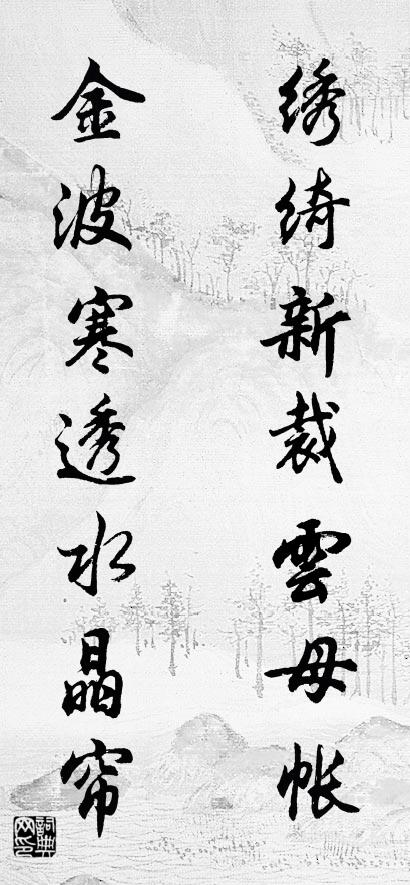 绣绮新裁雲母帐
金波寒透水晶帘
詞典网印